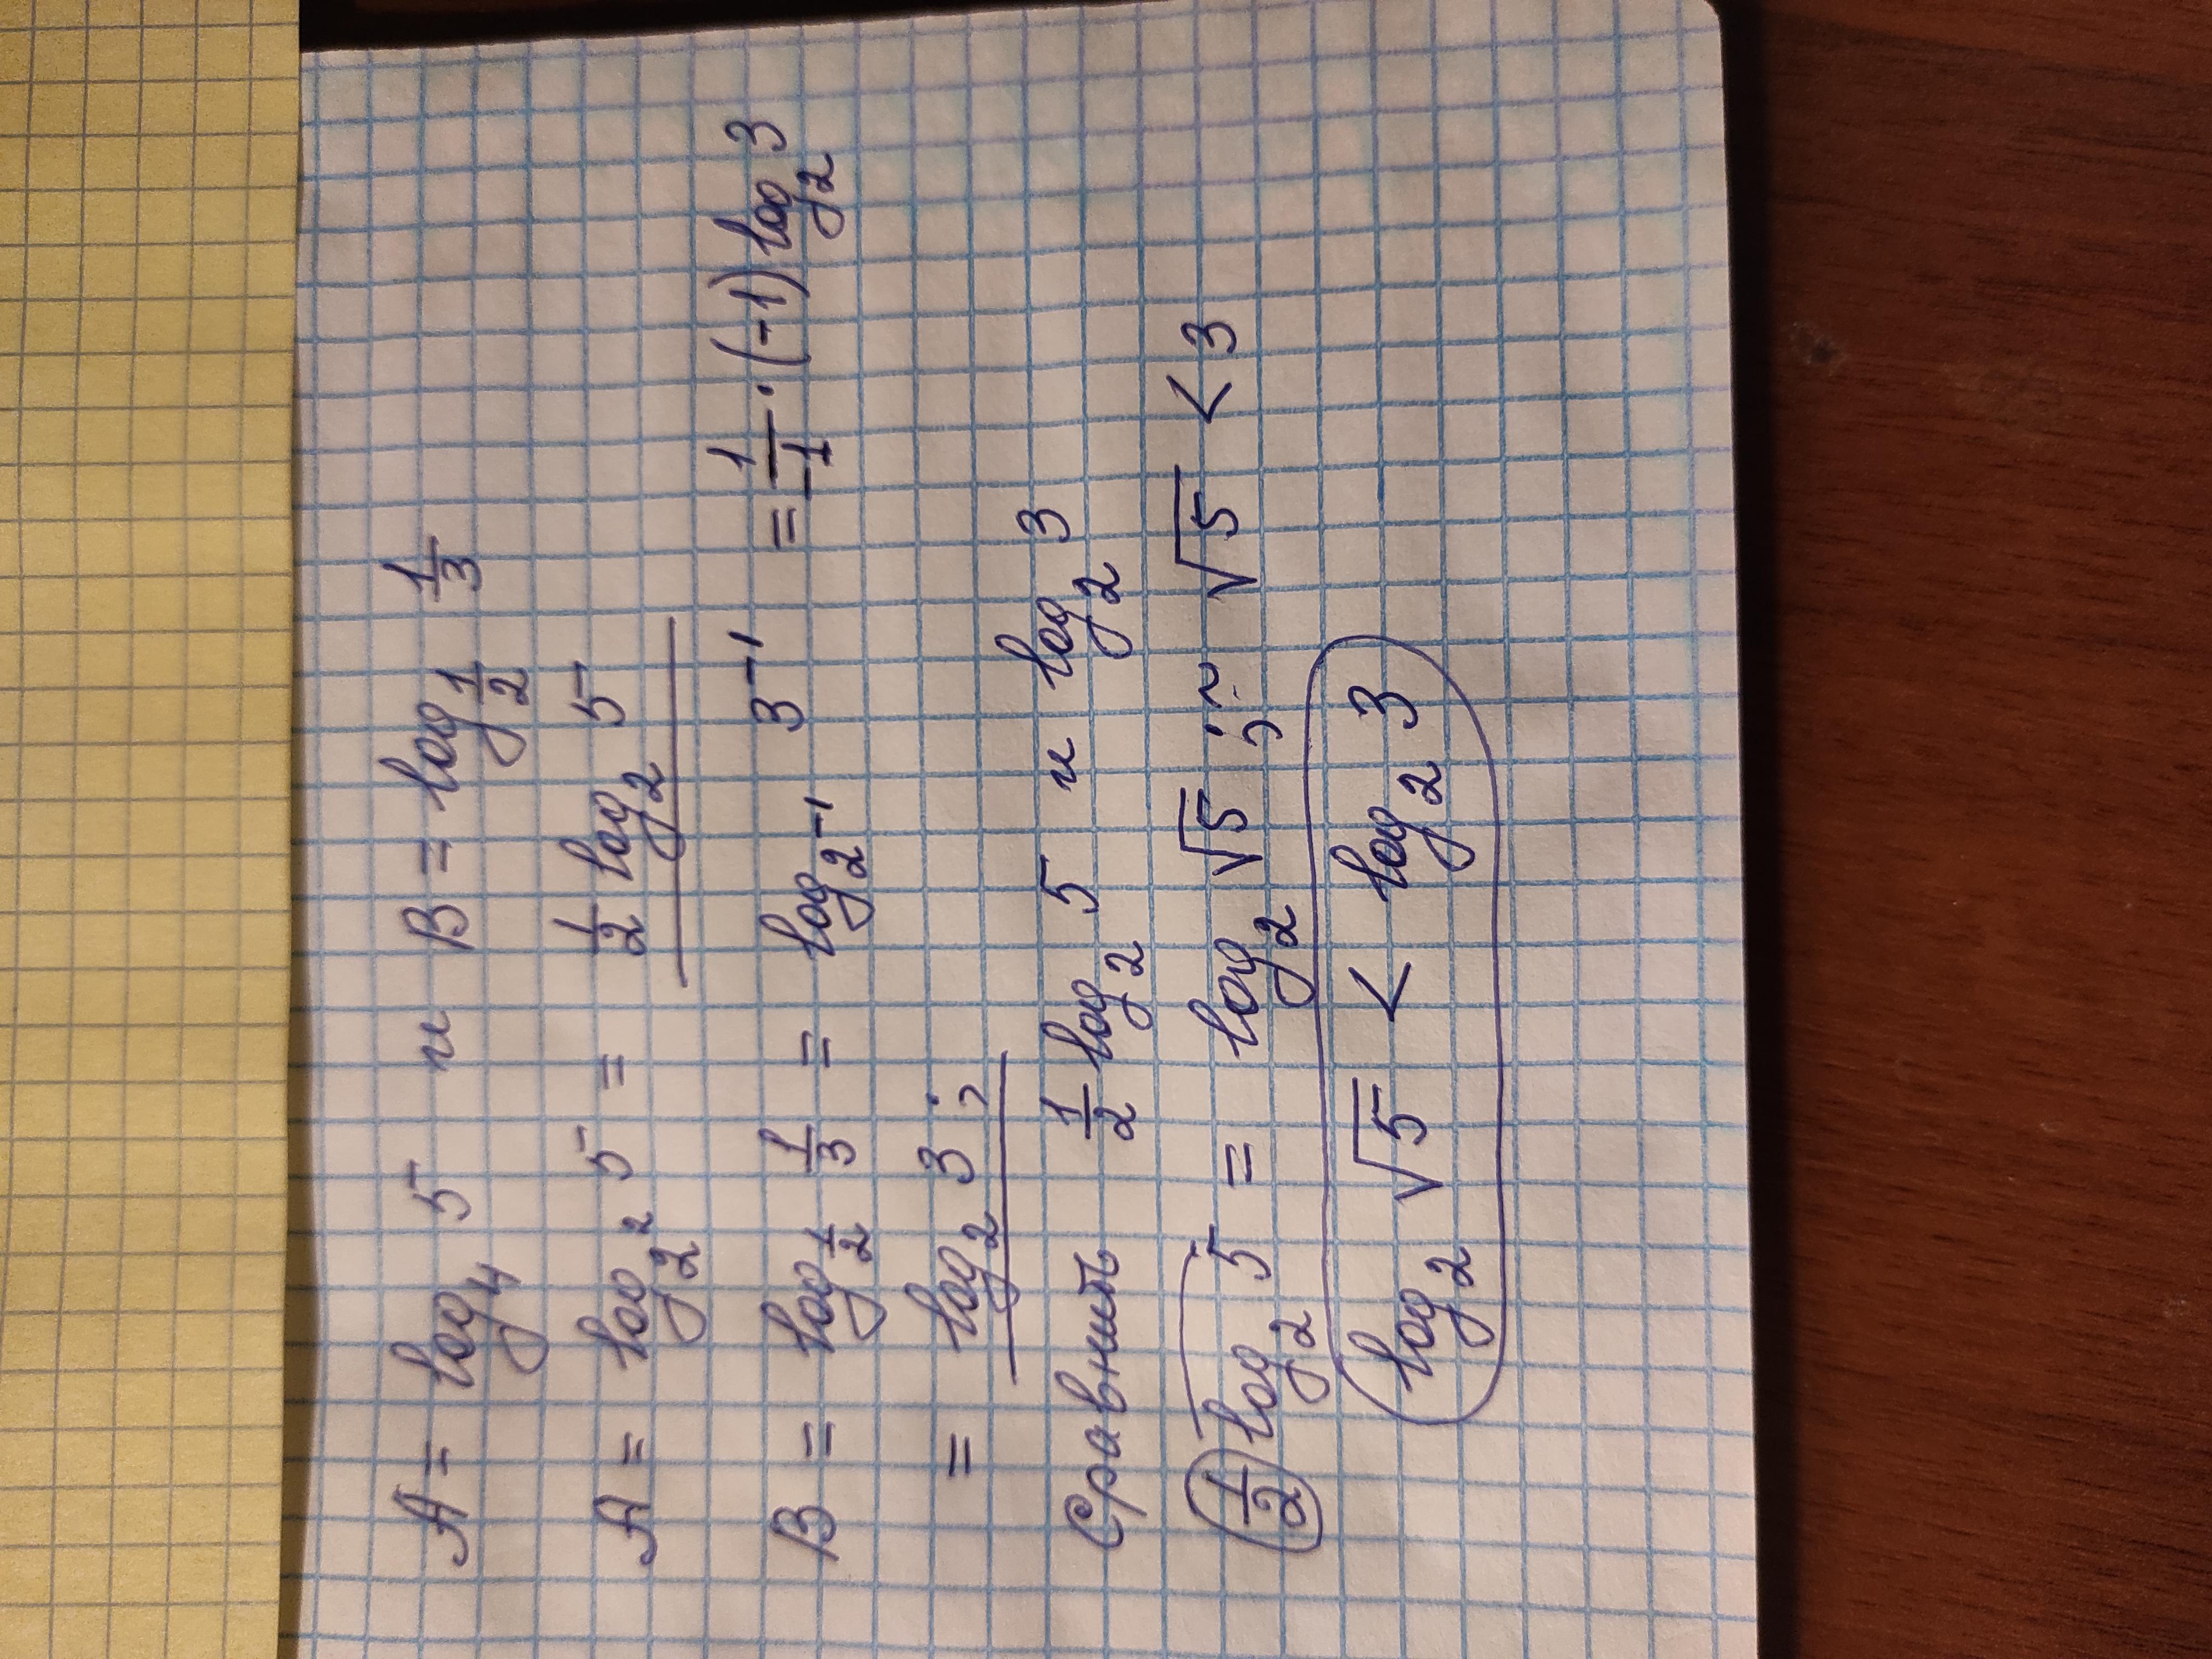 A = log₄ 5 и B = log_{1/2} 1/3
A = log_{2²} 5 = 1/2 log₂ 5
B = log_{1/2} 1/3 = log_{2⁻¹} 3⁻¹ = 1/-1 · (-1) log₂ 3
= log₂ 3 ;
Сравнить 1/2 log₂ 5 и log₂ 3
1/2 log₂ 5 = log₂ √5 ; √5 < 3
log₂ √5 < log₂ 3